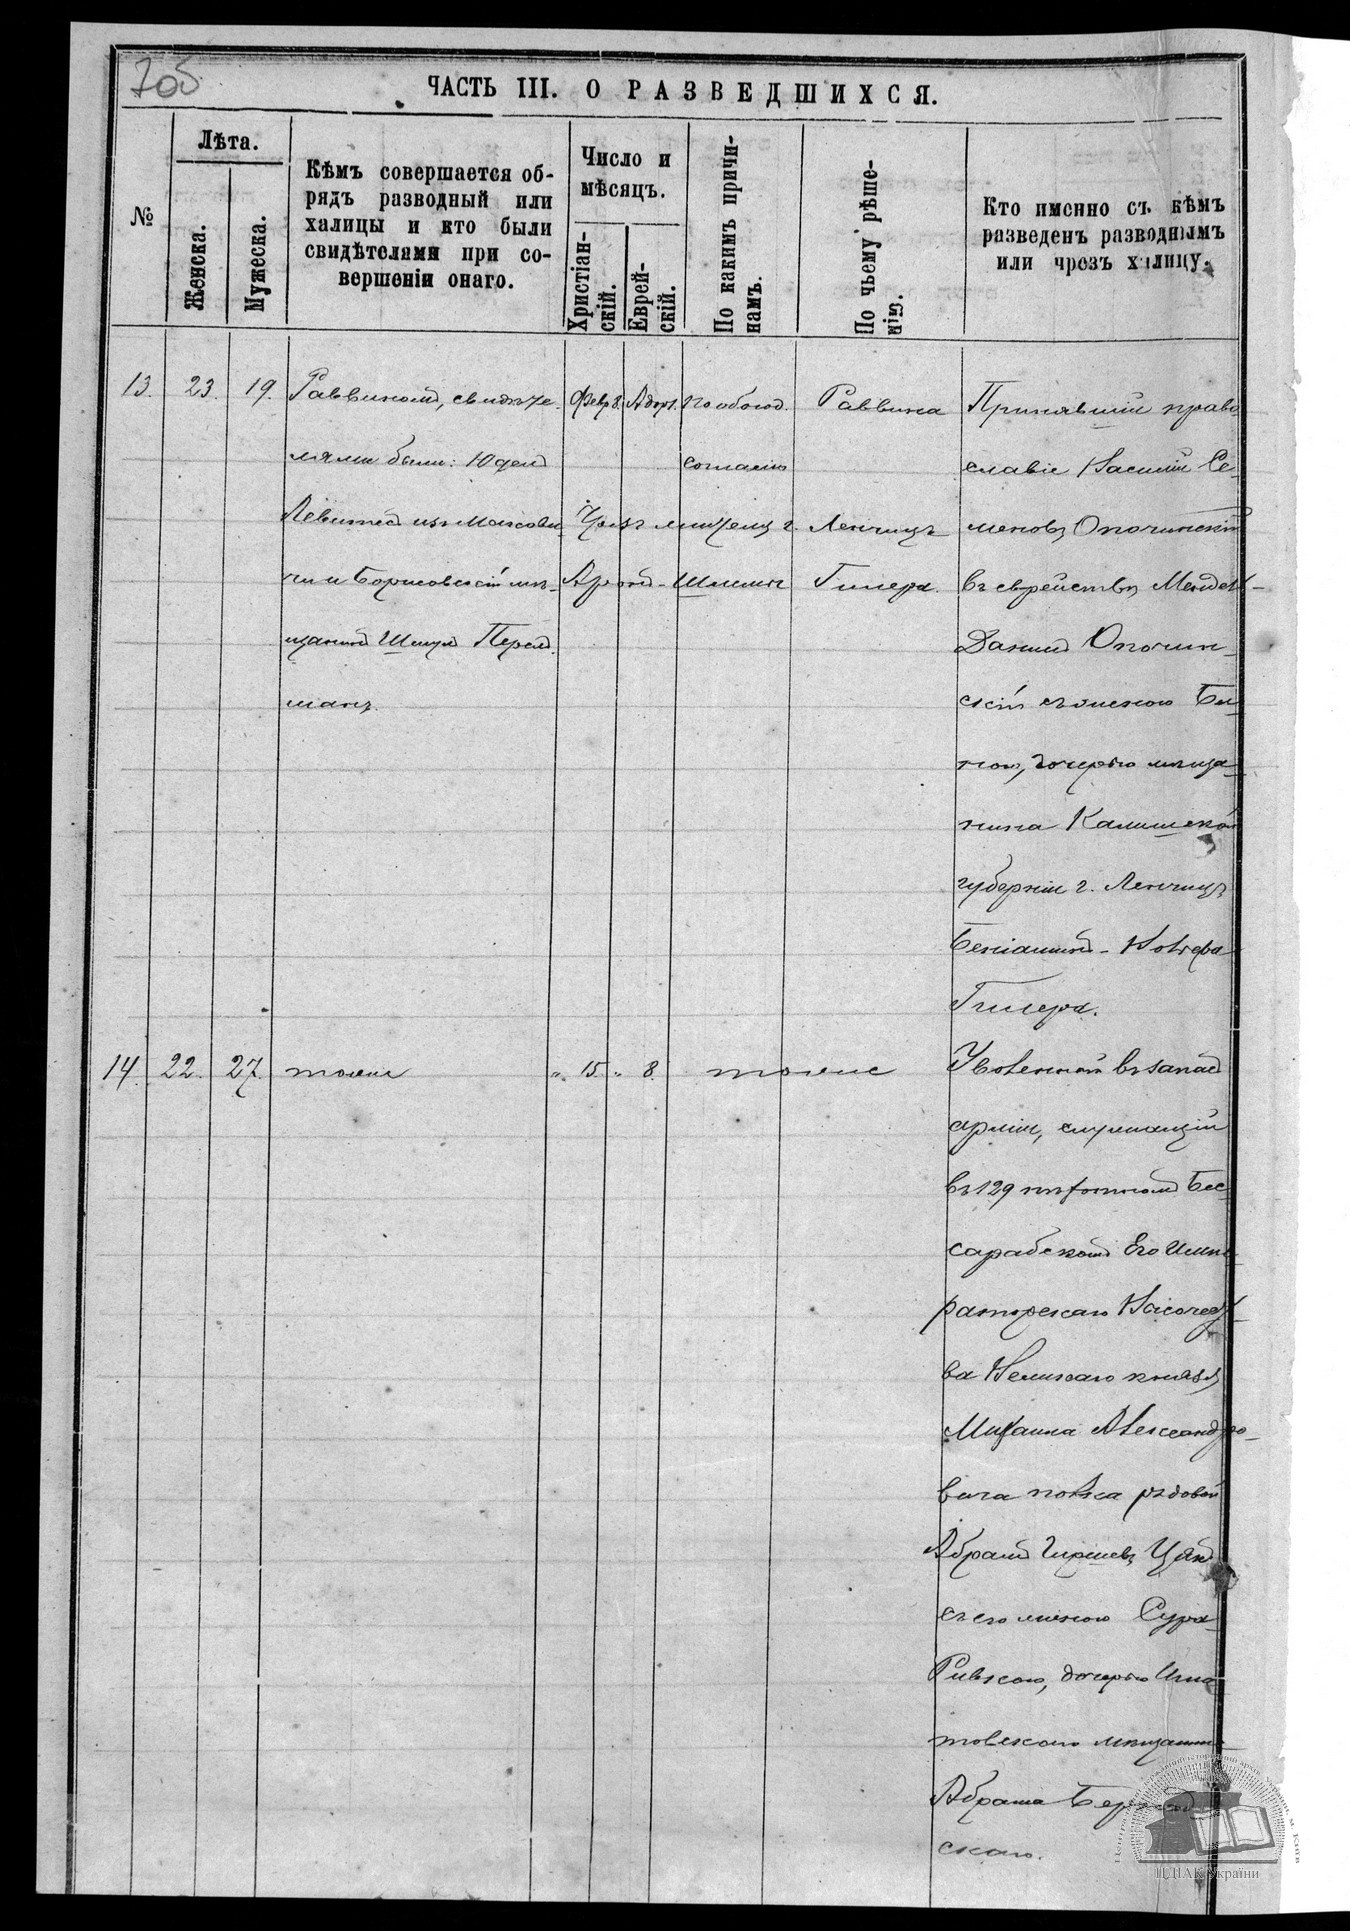 705
ЧАСТЬ III. О РАЗВЕДШИХСЯ.
№
Лѣта.
Женска.
Мужеска.
Кѣмъ совершается об-
рядъ разводный или
халицы и кто были
свидѣтелями при со-
вершеніи онаго.
Число и
мѣсяцъ.
Христіан-
скій.
Еврей-
скій.
По какимъ причи-
намъ.
По чьему рѣше-
нію.
Кто именно съ кѣмъ
разведенъ разводнымъ
или чрезъ халицу.
13. 23. 19.
Раввиномъ, свидѣте-
лями были:
Левитесъ изъ
и Борисовскій мѣ-
щанинъ Шмул Перел-
манъ
Февр 8. Адоръ 1.
По обоюд.
согласію
Раввина
Чрезъ г. Ленчицъ
Аронъ-Шлиму Гилера.
Принявшій право
славіе Василій Се-
меновъ Опочинскій
въ еврействѣ Мендель-
Даніил Опочин-
скій съ женою Бей-
лою, дочерью мѣща-
нина Калишской
губерніи г. Ленчицъ
Беніамина-Вольфа
Гилера.
14. 22. 27. тоже " 15. " 8. тоже
Уволенный въ запас
арміи, служащій
въ 129 пѣхотномъ Бес-
сарабскомъ Его Импе-
раторскаго Высочест-
ва Великаго князя
Михаила Александро-
вича полка рядовой
Абрамъ Гиршевъ
съ его женою Сура-
Ривкою, дочерью Игна-
товскаго мѣщанина
Абрама
скаго.
ЦДІАК України